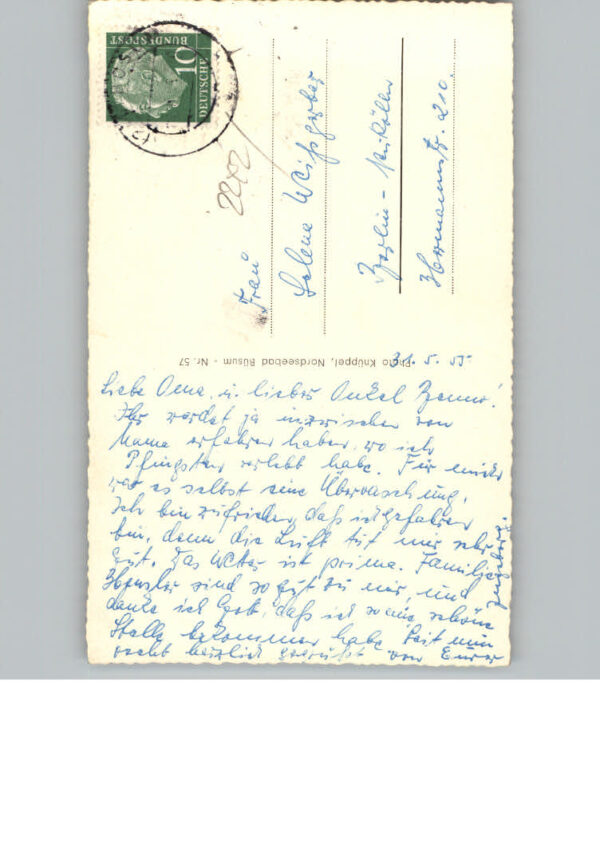 DEUTSCHE
BUNDESPOST
10
Frau
Helene Weißgerber
Berlin - Neukölln
Hermannstr. 210.
Photo Knüppel, Nordseebad Büsum - Nr. 57
31. 5. 55
Liebe Oma u. lieber Onkel Benno!
Ihr werdet ja inzwischen von
Mama erfahren haben, wo ich
Pfingsten verlebt habe. Für mich
war es selbst eine Überraschung.
Ich bin zufrieden, daß ich gefahren
bin, denn die Luft tut mir sehr
gut. Das Wetter ist prima. Familie
sind so gut zu mir, und
danke ich Gott, daß ich so eine schöne
Stelle bekommen habe. Seid nun
recht herzlich gegrüßt von Eurer
Ingeborg.